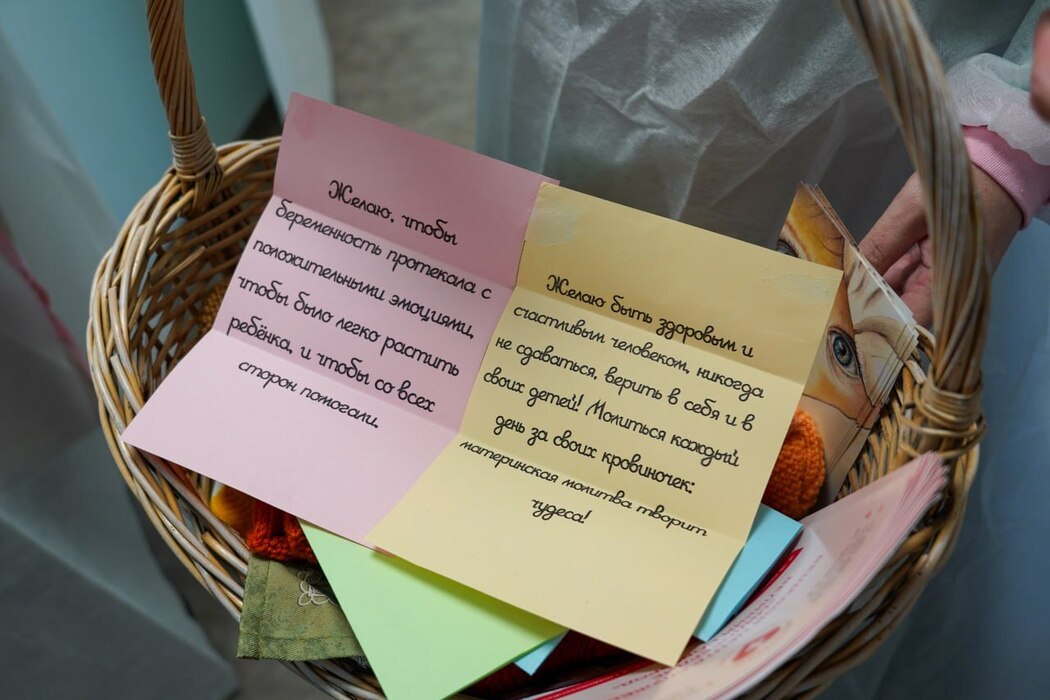 Желаю, чтобы
беременность протекала с
положительными эмоциями,
чтобы было легко растить
ребёнка, и чтобы со всех
сторон помогали.
Желаю быть здоровым и
счастливым человеком, никогда
не сдаваться, верить в себя и в
своих детей! Молиться каждый
день за своих кровиночек:
материнская молитва творит
чудеса!